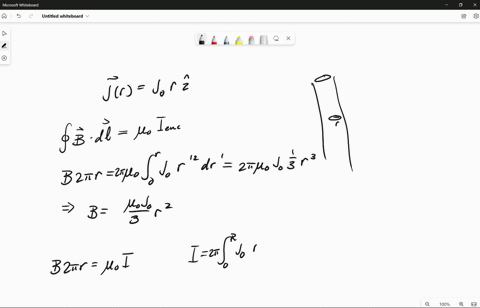 Microsoft Whiteboard
Untitled whiteboard
j⃗(r) = J₀ r ẑ
∮ B⃗ · dl⃗ = μ₀ I_enc
B 2πr = 2πμ₀ ∫₀^r J₀ r'² dr' = 2π μ₀ J₀ 1/3 r³
⇒ B = μ₀J₀/3 r²
B 2πr = μ₀ I
I = 2π ∫₀^R J₀ r
r
100%